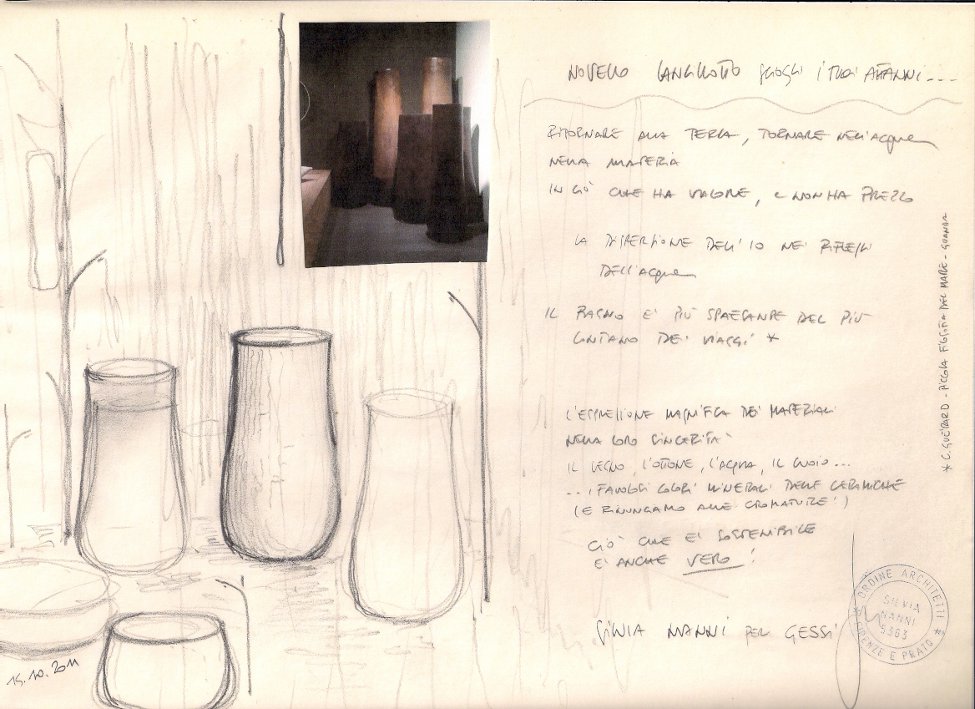 NOVELLO LANCILLOTTO SCIOGLI I TUOI AFFANNI...
RITORNARE ALLA TERRA, TORNARE NELL'ACQUA
NELLA MATERIA
IN CIÒ CHE HA VALORE, E NON HA PREZZO
LA DISPERSIONE DELL'IO NEI RIFLESSI
DELL'ACQUA
IL BAGNO E' PIÙ SPAESANTE DEL PIÙ
LONTANO DEI VIAGGI *
L'ESPRESSIONE MAGNIFICA DEI MATERIALI
NELLA LORO SINCERITA'
IL LEGNO, L'OTTONE, L'ACQUA, IL CUOIO...
...I FAVOLOSI COLORI MINERALI DELLE CERAMICHE
(E RINUNCIAMO ALLE CROMATURE!)
CIÒ CHE E' SOSTENIBILE
E' ANCHE VERO!
SILVIA NANNI PER GESSI
* C. GUÉRARD - PICCOLA FILOSOFIA DEL MARE - GUANDA
ORDINE ARCHITETTI
SILVIA
NANNI
5363
FIRENZE E PRATO
15.10.2011